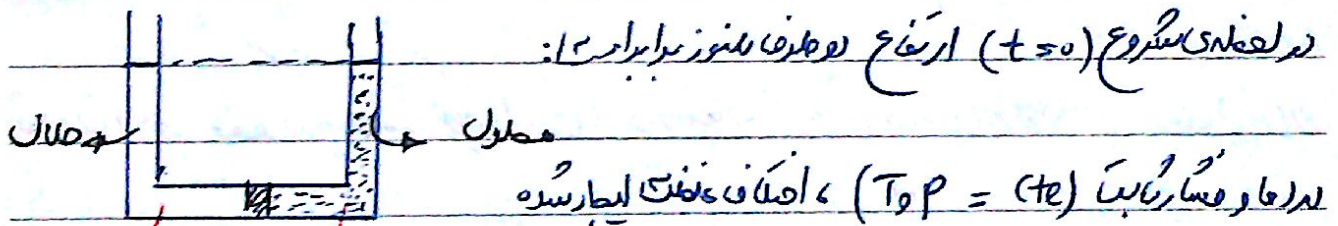 در لحظه‌ی شروع (t=0) ارتفاع دو طرف هنوز برابر است:
حلال
محلول
در دما و فشار ثابت (te) = P و T) ، اختلاف غلظت ایجاد شده